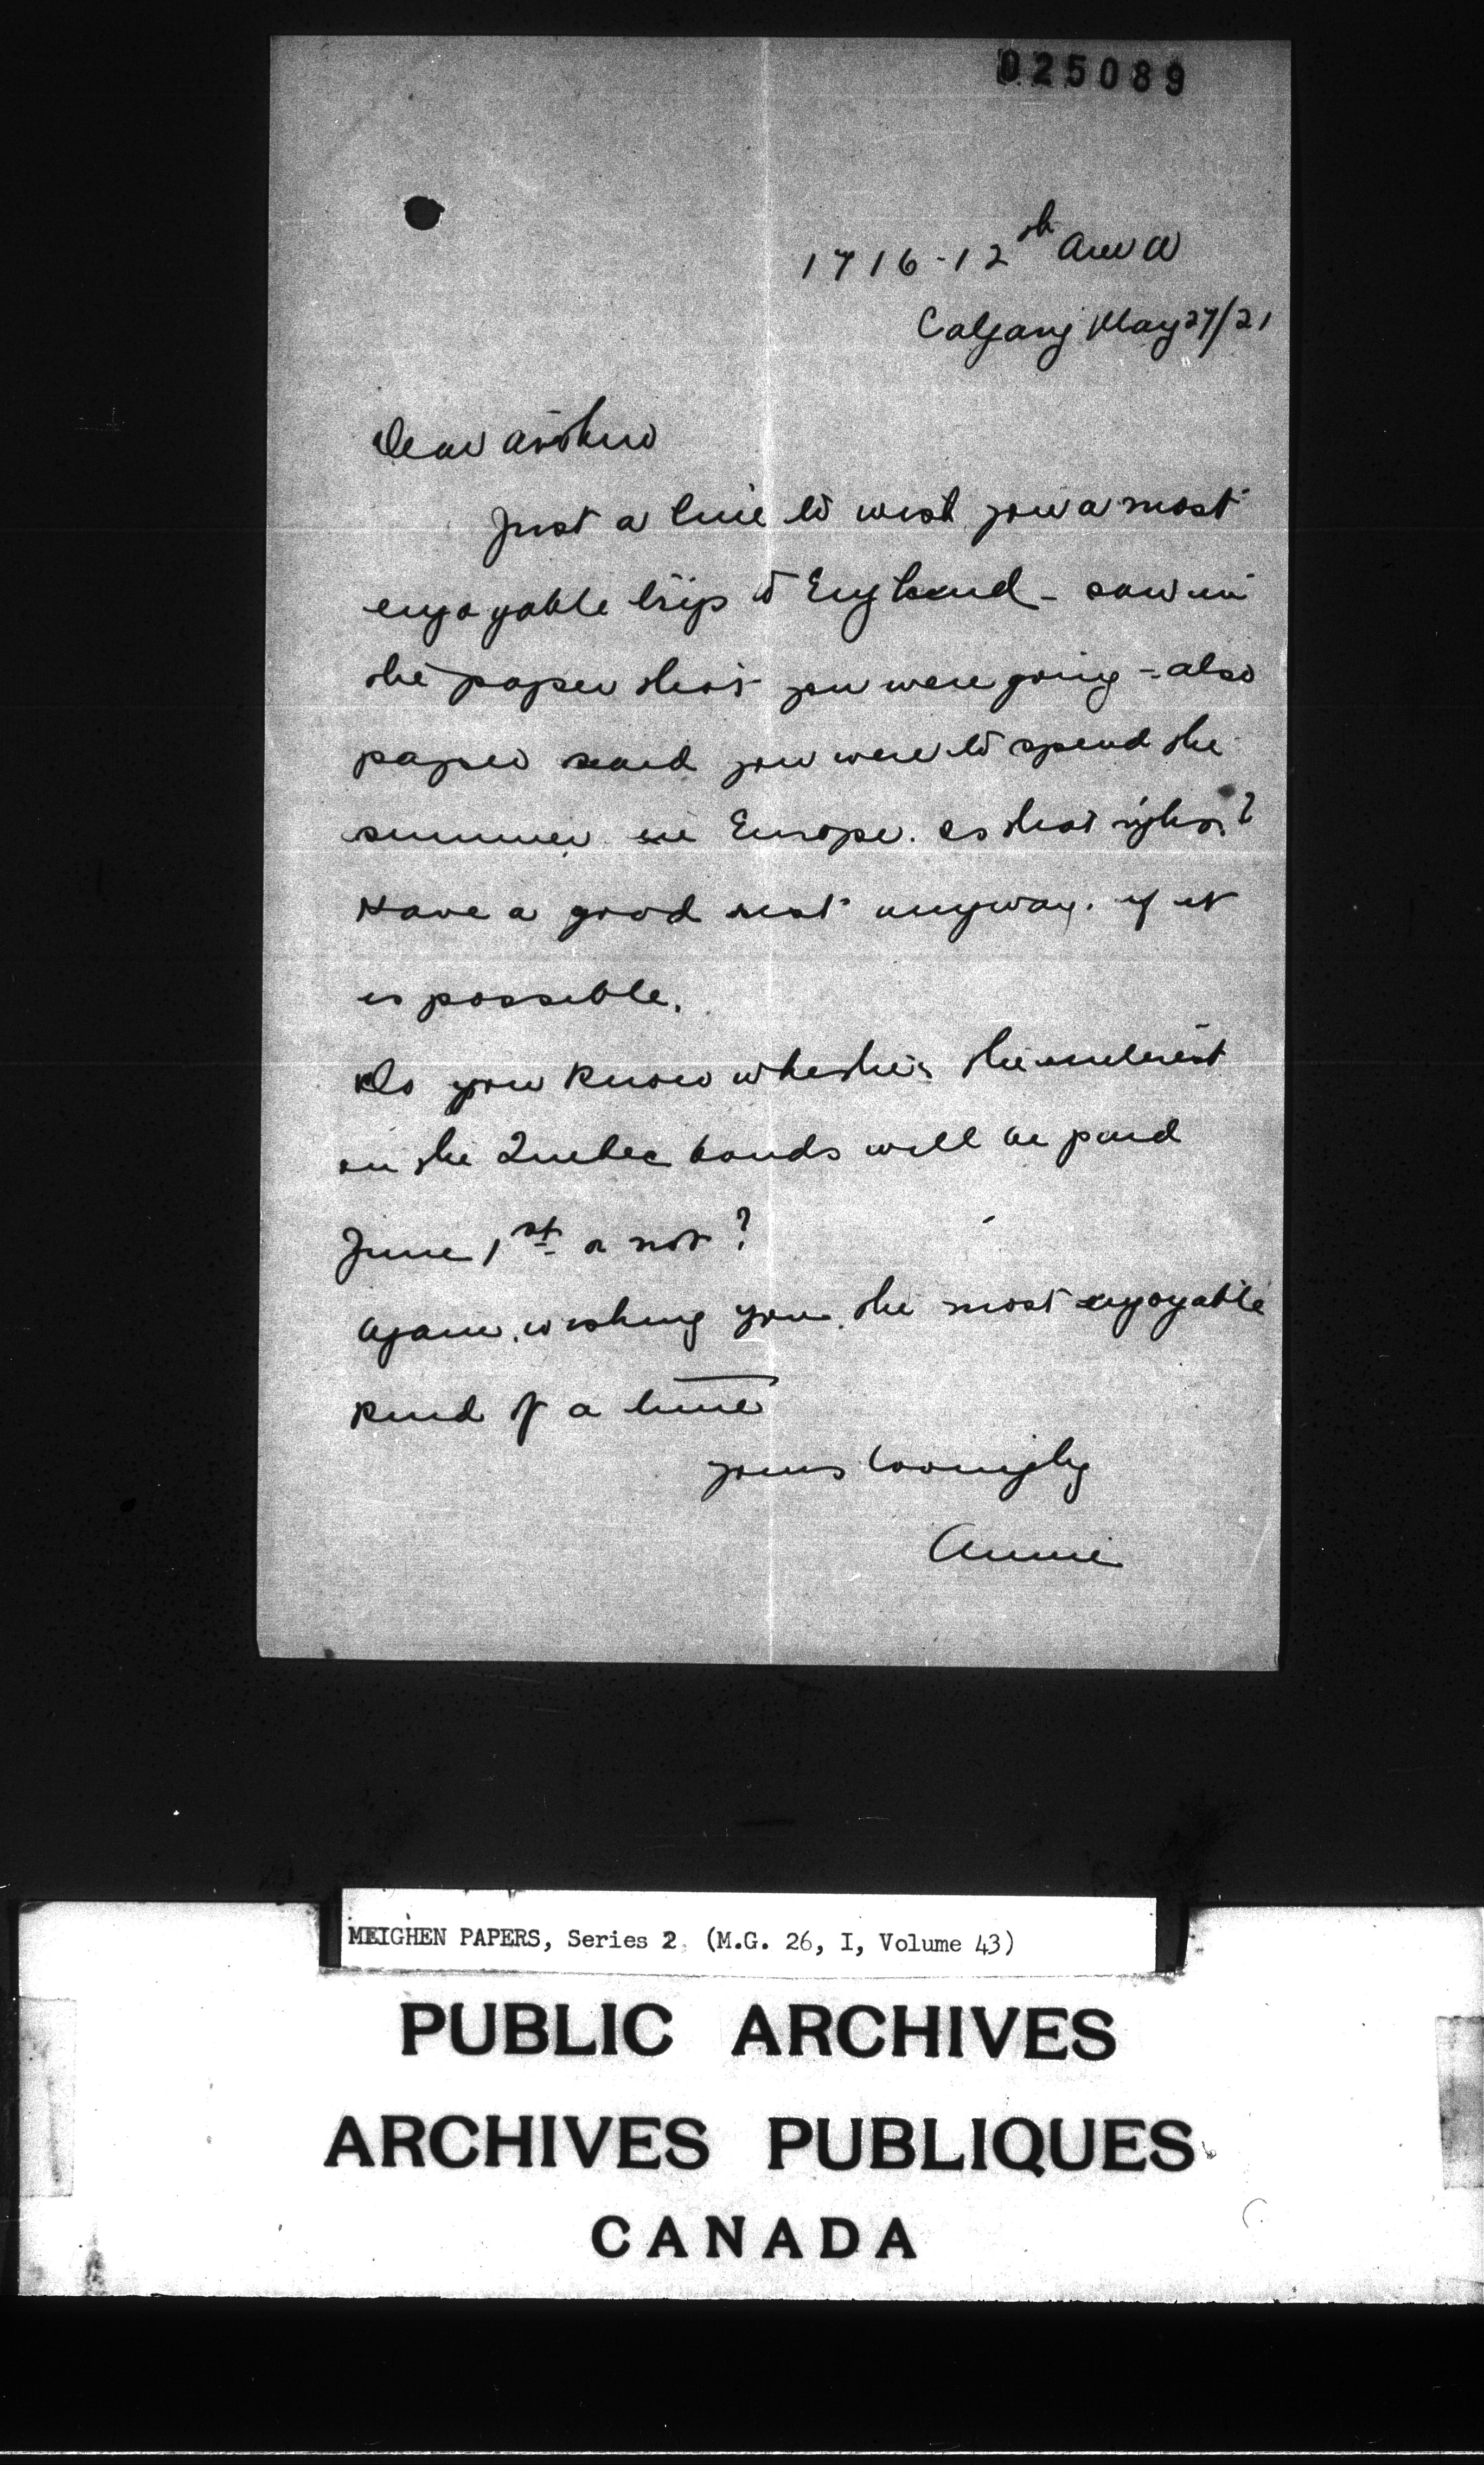 025089
1716-12th Ave W
Calgary May 27/21
Dear Arthur
Just a line to wish you a most
enjoyable trip to England - saw in
the paper that you were going - also
paper said you were to spend the
summer in Europe. Is that right?
Have a good rest anyway. if it
is possible.
Do you know whether the interest
on the Quebec bonds will be paid
June 1st or not?
Again, wishing you the most enjoyable
kind of a time
yours lovingly
Annie
MEIGHEN PAPERS, Series 2 (M.G. 26, I, Volume 43)
PUBLIC ARCHIVES
ARCHIVES PUBLIQUES
CANADA